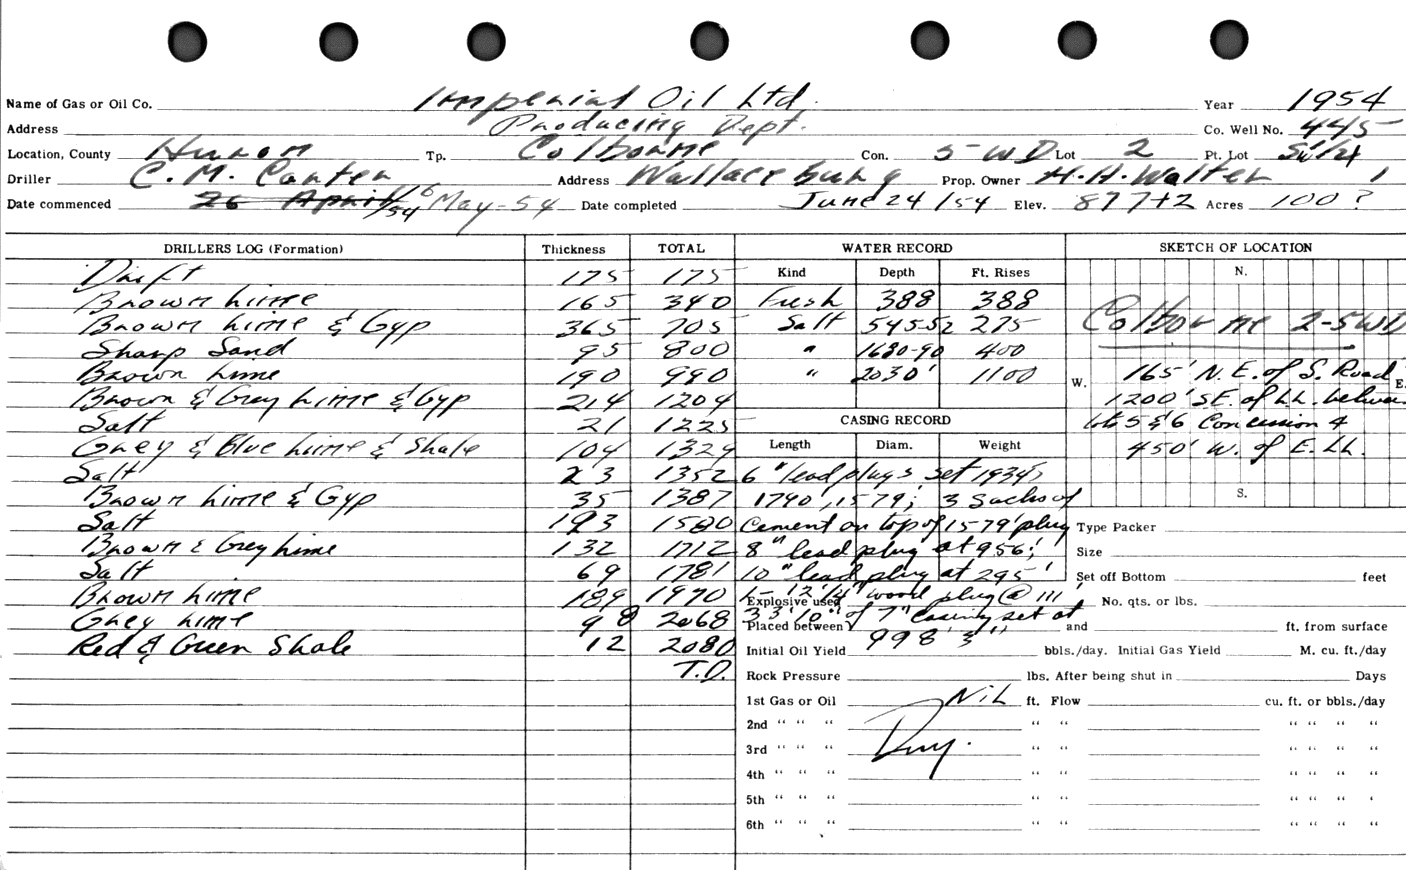 Name of Gas or Oil Co. Imperial Oil Ltd. Year 1954
Address Producing Dept. Co. Well No. 445
Location, County Huron Tp. Colborne Con. 5-WD Lot 2 Pt. Lot
Driller C. M. Carter Address Wallaceburg Prop. Owner H. H. Walter
Date commenced 26 April/54 16 May-54 Date completed June 24/54 Elev. 877+2 Acres 100?
DRILLERS LOG (Formation) Thickness TOTAL
Drift 175 175
Brown Lime 165 340
Brown Lime & Gyp 365 705
Sharp Sand 95 800
Brown Lime 190 990
Brown & Grey Lime & Gyp 214 1204
Salt 21 1225
Grey & Blue Lime & Shale 104 1329
Salt 23 1352
Brown Lime & Gyp 35 1387
Salt 193 1580
Brown & Grey Lime 132 1712
Salt 69 1781
Brown Lime 189 1970
Grey Lime 98 2068
Red & Green Shale 12 2080
T.D.
WATER RECORD
Kind Depth Ft. Rises
Fresh 388 388
Salt 545-52 275
" 1680-90 400
" 2030' 1100
CASING RECORD
Length Diam. Weight
6" lead plugs set 1934',
1790', 1579'; 3 Sacks of
Cement on top of 1579' plug
8" lead plug at 956';
10" lead plug at 295'
1- 12 1/4" wood plug @ 111'
33'10" of 7" Casing set at
998' 3"
SKETCH OF LOCATION
N.
Colborne 2-5WD
165' N.E. of S. Road
W. E.
1200' S.E. of L.L. between
lots 5 & 6 Concession 4
450' W. of E. LL.
S.
Type Packer
Size
Set off Bottom feet
Explosive used No. qts. or lbs.
Placed between and ft. from surface
Initial Oil Yield bbls./day. Initial Gas Yield M. cu. ft./day
Rock Pressure lbs. After being shut in Days
1st Gas or Oil Nil ft. Flow cu. ft. or bbls./day
2nd " " " " " " " " "
Dry.
3rd " " " " " " " " "
4th " " " " " " " " "
5th " " " " " " " " '
6th " " " " " " " " "